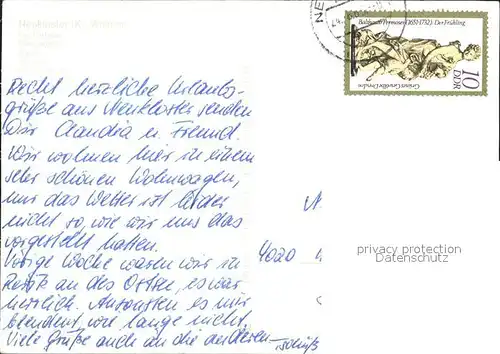 Neukloster (Kr. Wismar)
Recht herzliche Urlaubs-
grüße aus Neukloster senden
Dir Claudia u. Freund.
Wir wohnen hier in einem
sehr schönen Wohnwagen,
nur das Wetter ist leider
nicht so, wie wir uns das
vorgestellt hatten.
Vorige Woche waren wir in
an der Ostsee, es war
herrlich. Ansonsten es mir
blendend, wie lange nicht.
Viele Grüße auch an die anderen
4020
Balthasar Permoser (1651-1732): Der Frühling
Grünes Gewölbe Dresden
10
DDR
NE
privacy protection
Datenschutz